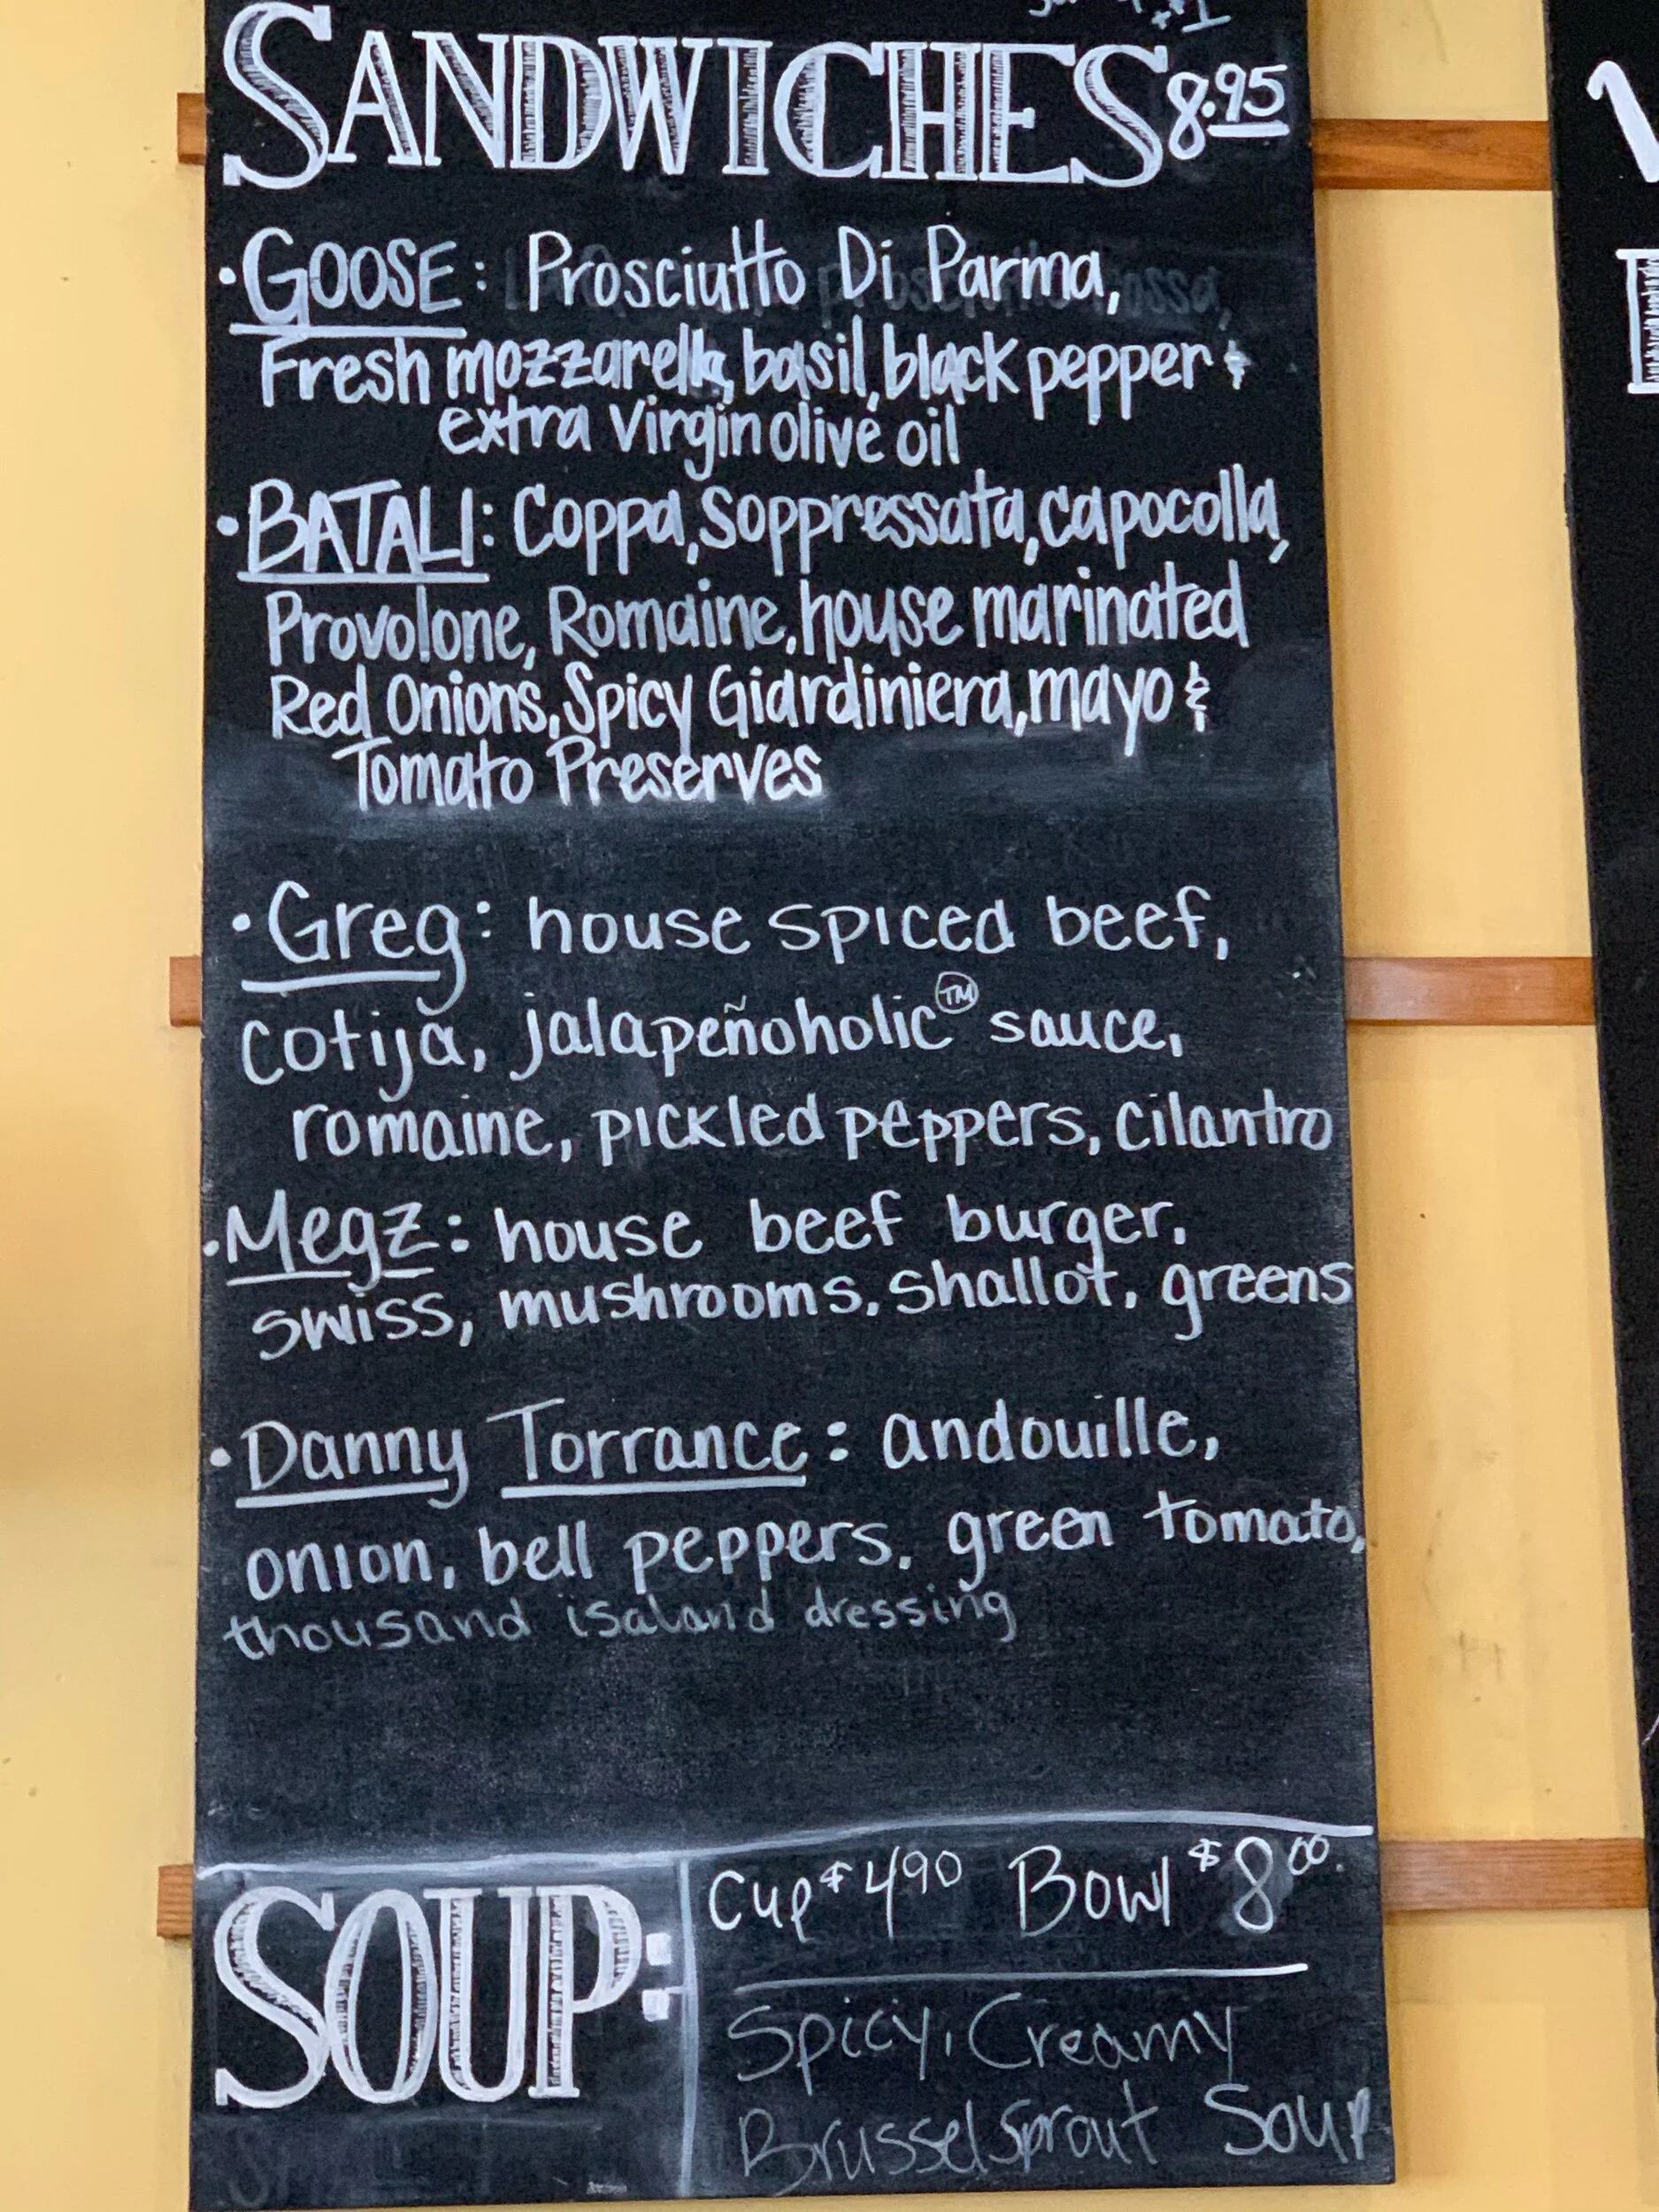 SANDWICHES 8.95
• GOOSE: Prosciutto Di Parma,
Fresh mozzarella, basil, black pepper &
extra Virgin olive oil
• BATALI: Coppa, Soppressata, capocolla,
Provolone, Romaine, house marinated
Red Onions, Spicy Giardiniera, mayo &
Tomato Preserves
• Greg: house spiced beef,
cotija, jalapeñoholic™ sauce,
romaine, pickled peppers, cilantro
• Megz: house beef burger,
swiss, mushrooms, shallot, greens
• Danny Torrance: andouille,
onion, bell peppers, green tomato,
thousand isaland dressing
SOUP:
Cup $4.90 Bowl $8.00
Spicy, Creamy
Brussel Sprout Soup